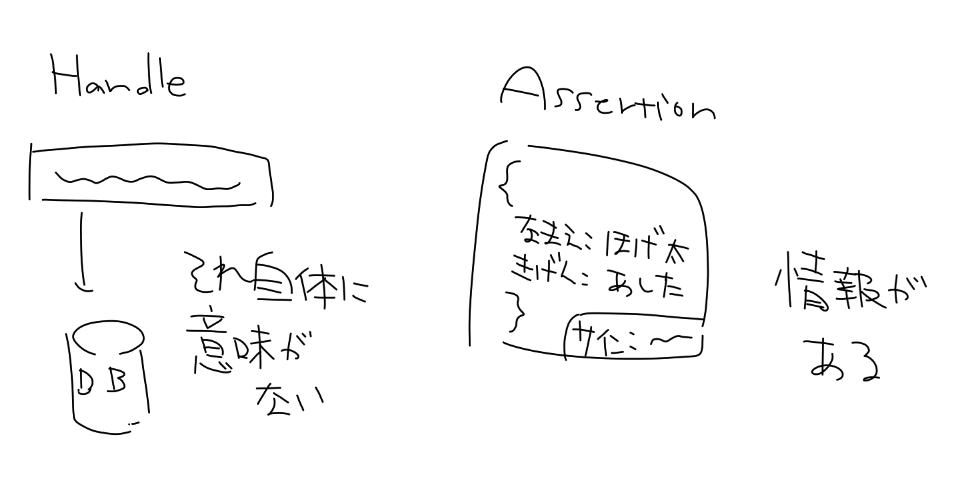 Handle
それ自体に
意味が
ない
DB
Assertion
{
なまえ：ほげ太
きげん：あした
}
サイン：〜
情報が
ある